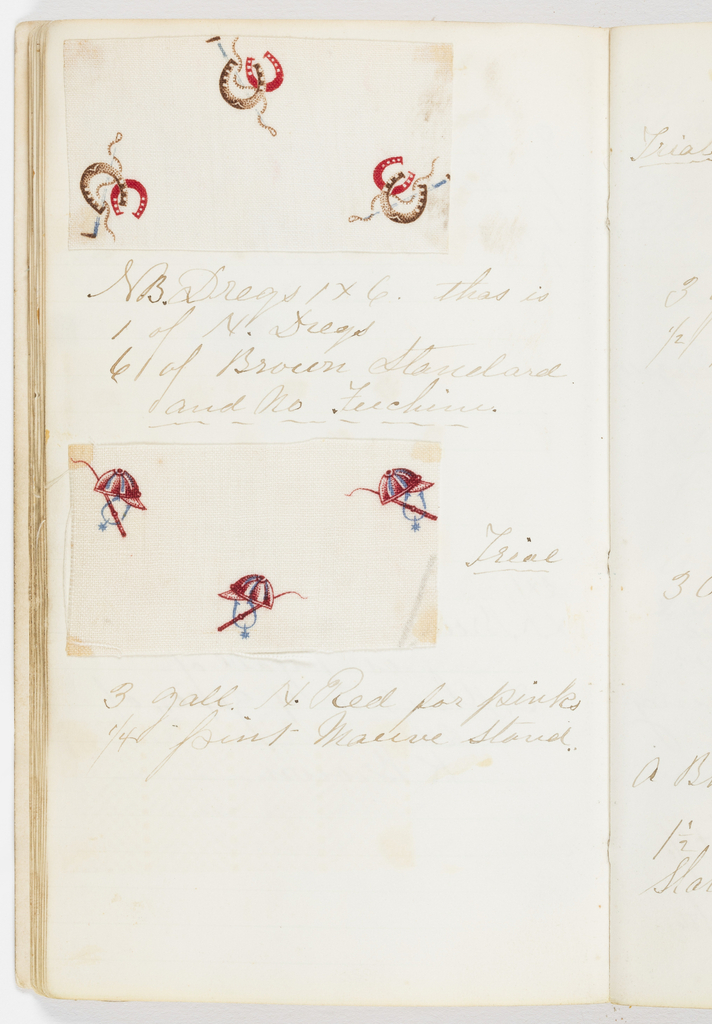 NB. Dregs 1 x 6. that is
1 of N. Dregs
6 of Brown Standard
and No Fuchine.
Trial
3 gall. N. Red for pinks
1/4 pint Mauve Stand.
Trial
3
1/2
3
A B
1 1/2
Star